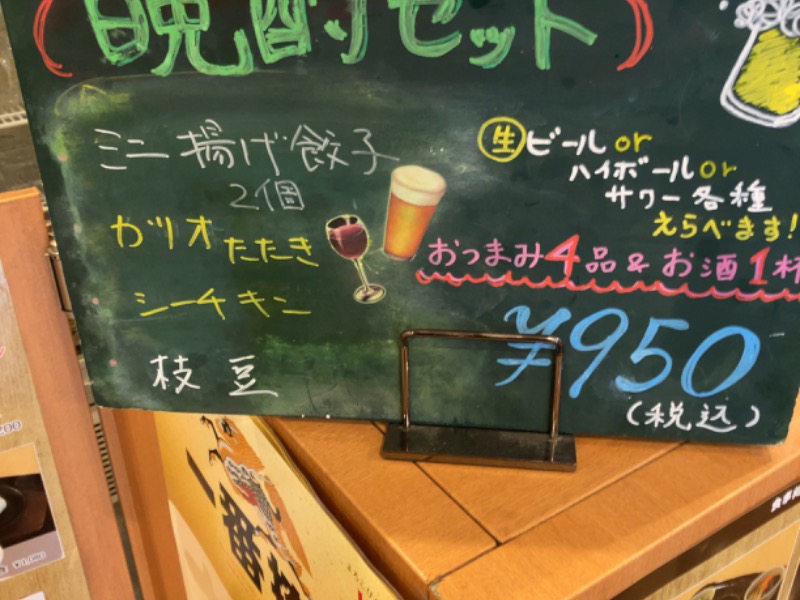 (晩酌セット)
ミニ揚げ餃子
2個
カツオたたき
シーチキン
枝豆
生ビールor
ハイボールor
サワー各種
えらべます!
おつまみ4品&お酒1杯
¥950
(税込)
一番